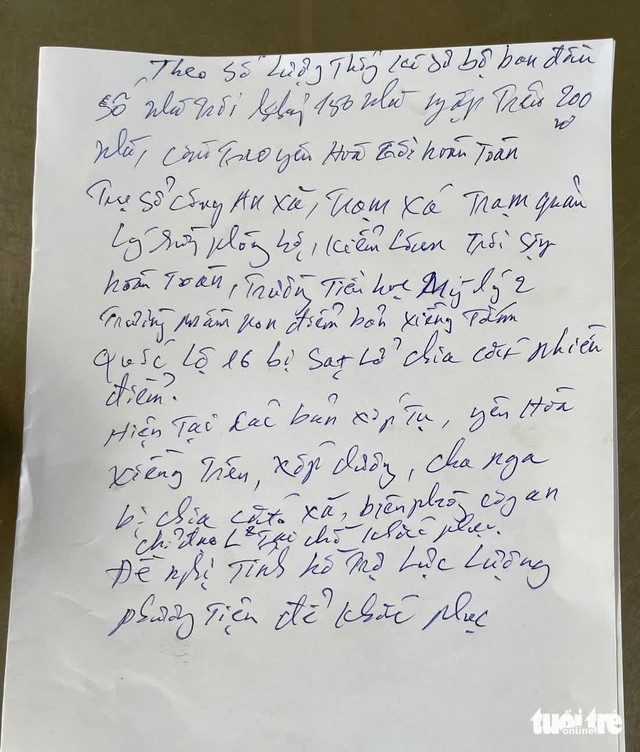 Theo số lượng thống kê sơ bộ ban đầu
số nhà trôi khoảng 180 nhà ngập trên 200
nhà, cầu treo yên Hoà trôi hoàn toàn
Trụ sở công an xã, trạm xá trạm quản
lý rừng phòng hộ, kiểm lâm trôi sập
hoàn toàn, trường tiểu học Mỹ lý 2
trường mầm non điểm bản xiềng tắm
quốc lộ 16 bị sạt lở chia cắt nhiều
điểm.
Hiện tại các bản xốp tụ, yên Hoà
xiềng trên, xốp dương, cha nga
bị chia cắt xã, biên phòng công an
chỉ đạo 4 tại chỗ khắc phục.
Đề nghị Tỉnh hỗ trợ lực lượng
phương tiện để khắc phục
tuổi trẻ
online